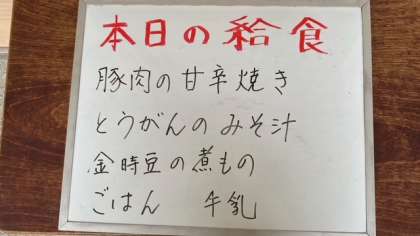 本日の給食
豚肉の甘辛焼き
とうがんのみそ汁
金時豆の煮もの
ごはん 牛乳